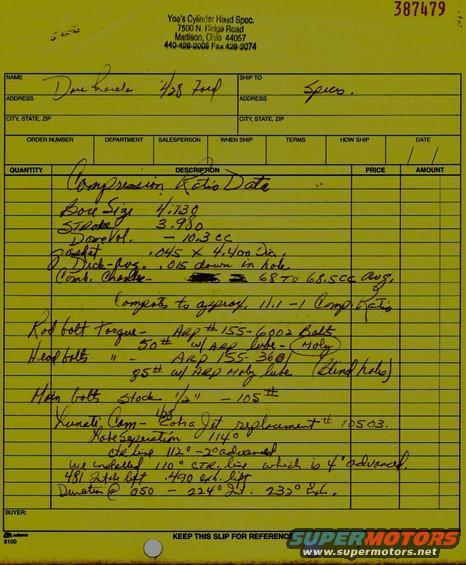 387479
Yoe's Cylinder Head Spec.
7500 N. Ridge Road
Madison, Ohio 44057
440-428-2009 Fax 428-2074
NAME Dave 428 Ford SHIP TO Specs.
ADDRESS ADDRESS
CITY, STATE, ZIP CITY, STATE, ZIP
ORDER NUMBER DEPARTMENT SALESPERSON WHEN SHIP TERMS HOW SHIP DATE
QUANTITY DESCRIPTION PRICE AMOUNT
Compression Ratio Data
Bore Size 4.130
Stroke 3.980
Dome Vol. - 10.3 cc
gasket .045 x 4.400 Dia.
Deck-Avg. .015 down in hole
Comb. Chamber 68 TO 68.5cc Avg.
Computs to approx. 11.1 - 1 Comp. Ratio
Rod bolt Torque- ARP # 155-6002 Bolt
50# w/ ARP lube- (Moly)
Head bolts " - ARP 155-3601
85# w/ ARP Moly lube (Blind hole)
Main bolts Stock 1/2" - 105#
Lunati Cam- 428 Cobra Jet replacement # 10503.
Lobe Seperation 114°
CTR line 112° - 2° advanced
We installed 110° CTR. line which is 4° advanced.
481 Intake lift .490 exh. lift
Duration @ 050 - 224° Int. 232° Exh.
BUYER:
adams
8100
KEEP THIS SLIP FOR REFERENCE
SUPERMOTORS
www.supermotors.net